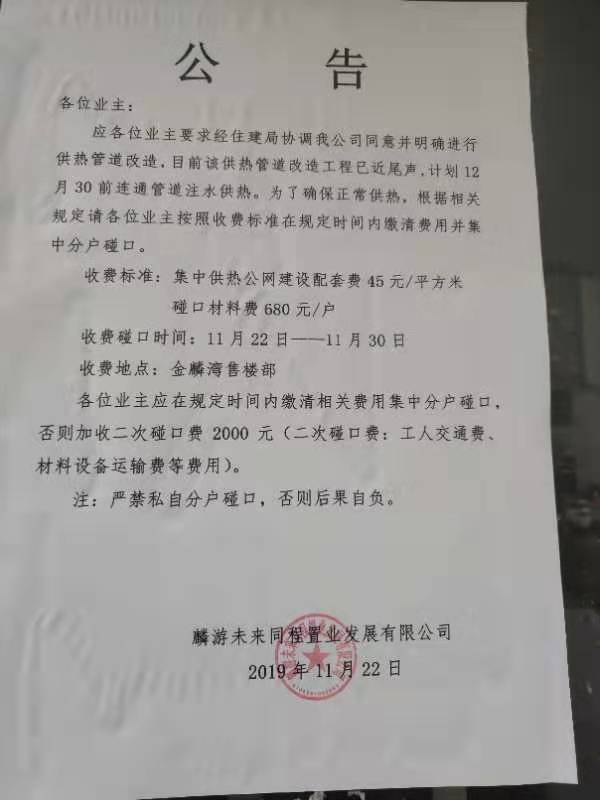 公 告
各位业主：
应各位业主要求经住建局协调我公司同意并明确进行
供热管道改造，目前该供热管道改造工程已近尾声，计划12
月30前连通管道注水供热。为了确保正常供热，根据相关
规定请各位业主按照收费标准在规定时间内缴清费用并集
中分户碰口。
收费标准：集中供热公网建设配套费45元/平方米
碰口材料费680元/户
收费碰口时间：11月22日——11月30日
收费地点：金麟湾售楼部
各位业主应在规定时间内缴清相关费用集中分户碰口，
否则加收二次碰口费2000元（二次碰口费：工人交通费、
材料设备运输费等费用）。
注：严禁私自分户碰口，否则后果自负。
麟游未来同程置业发展有限公司
2019年11月22日